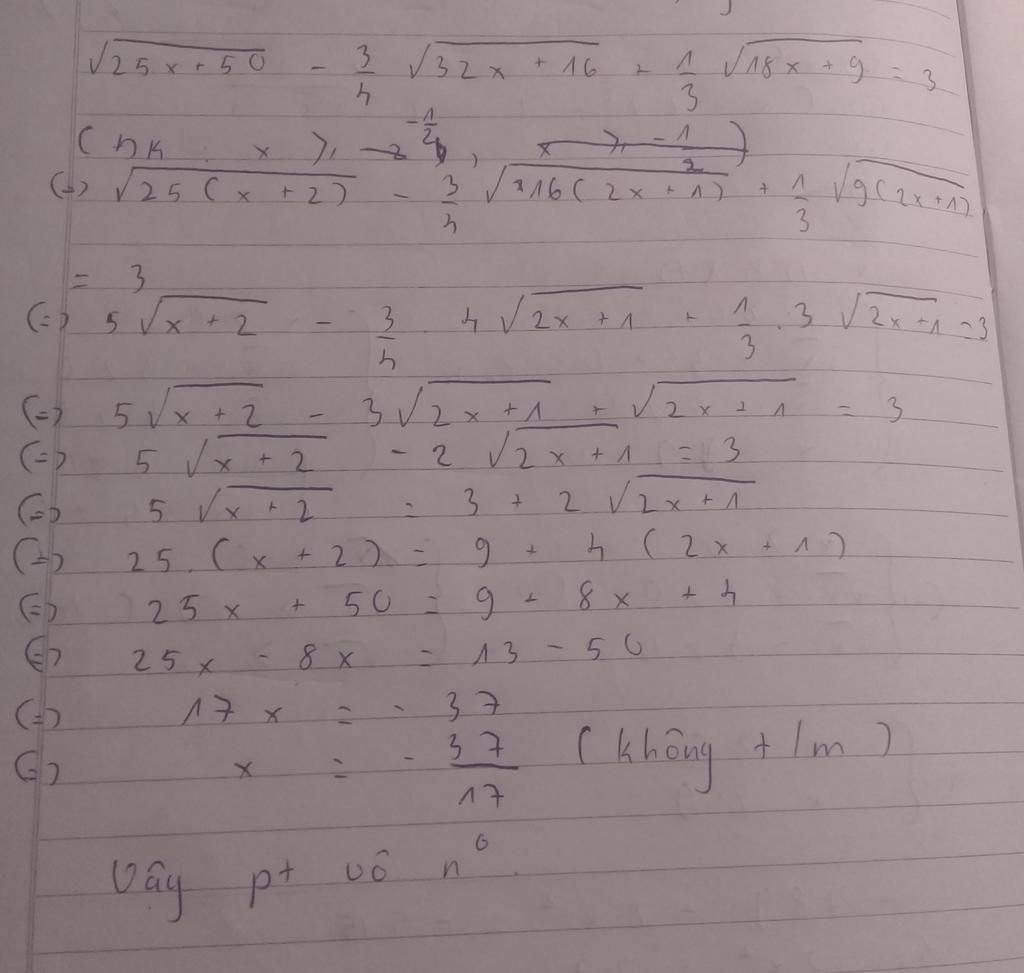 √25x + 50 - 3/4 √32x + 16 + 1/3 √18x + 9 = 3
(ĐK : x ≥ -1/2
(=) √25(x + 2) - 3/4 √16(2x + 1) + 1/3 √9(2x+1)
= 3
(=) 5√x + 2 - 3/4 . 4√2x + 1 + 1/3 . 3 √2x + 1 = 3
(=) 5√x + 2 - 3√2x + 1 + √2x + 1 = 3
(=) 5 √x + 2 - 2 √2x + 1 = 3
(=) 5 √x + 2 = 3 + 2 √2x + 1
(=) 25.(x + 2) = 9 + 4 (2x + 1)
(=) 25x + 50 = 9 + 8x + 4
(=) 25x - 8x = 13 - 50
(=) 17x = - 37
(=) x = - 37/17 (không t/m)
Vậy pt vô n⁰.